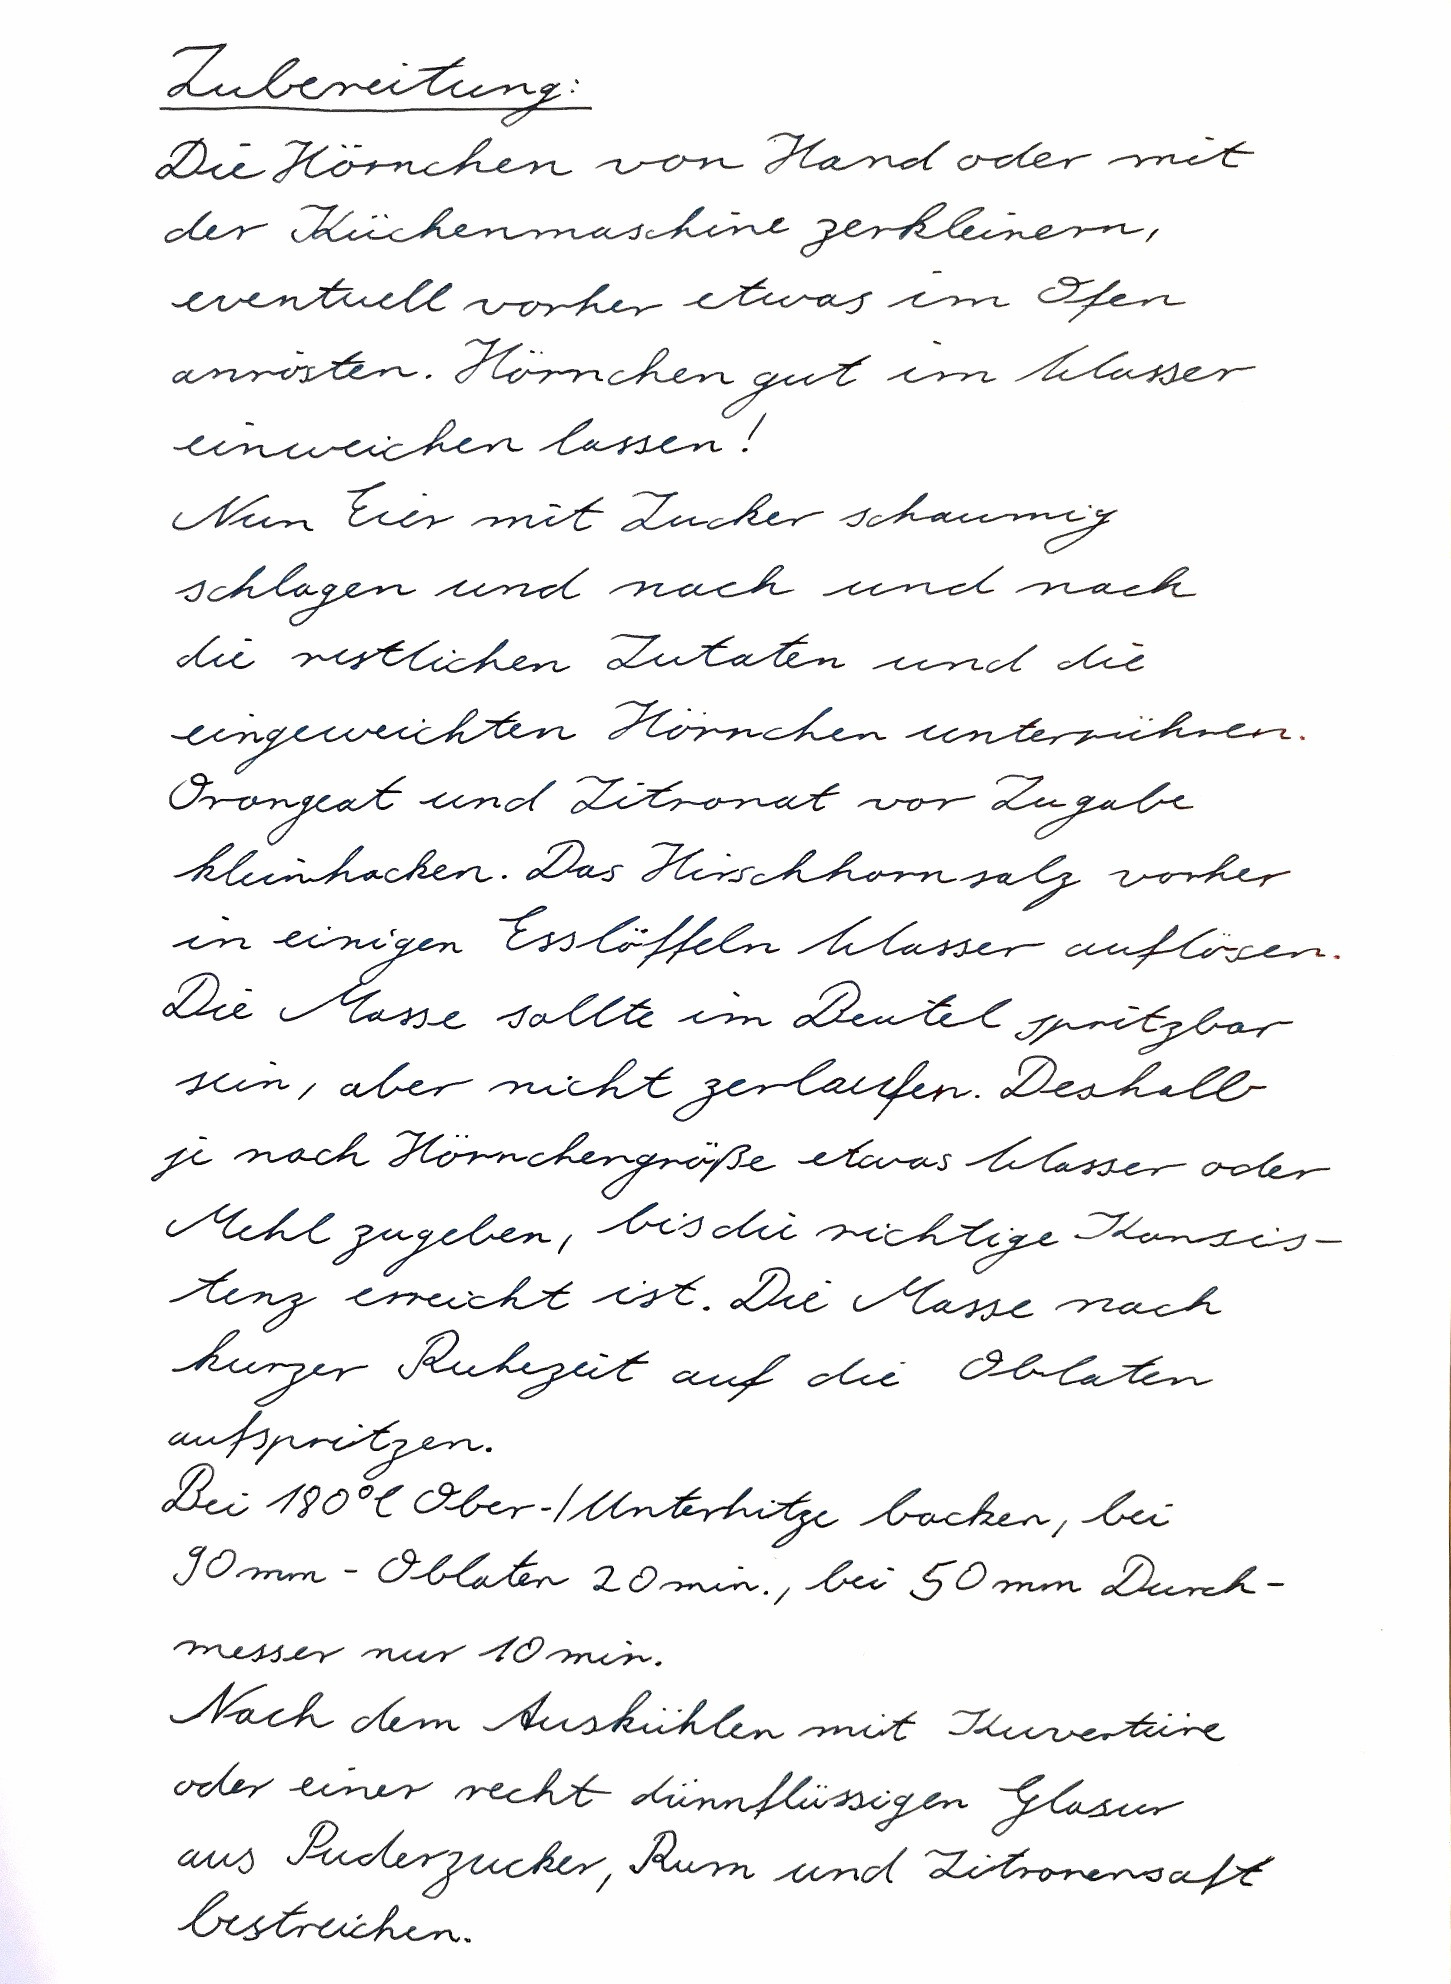 Zubereitung:
Die Hörnchen von Hand oder mit
der Küchenmaschine zerkleinern,
eventuell vorher etwas im Ofen
anrösten. Hörnchen gut im Wasser
einweichen lassen!
Nun Eier mit Zucker schaumig
schlagen und nach und nach
die restlichen Zutaten und die
eingeweichten Hörnchen unterrühren.
Orangeat und Zitronat vor Zugabe
kleinhacken. Das Hirschhornsalz vorher
in einigen Esslöffeln Wasser auflösen.
Die Masse sollte im Beutel spritzbar
sein, aber nicht zerlaufen. Deshalb
je nach Hörnchengröße etwas Wasser oder
Mehl zugeben, bis die richtige Konsis-
tenz erreicht ist. Die Masse nach
kurzer Ruhezeit auf die Oblaten
aufspritzen.
Bei 180°C Ober-/Unterhitze backen, bei
90mm-Oblaten 20min., bei 50mm Durch-
messer nur 10min.
Nach dem Auskühlen mit Kuvertüre
oder einer recht dünnflüssigen Glasur
aus Puderzucker, Rum und Zitronensaft
bestreichen.